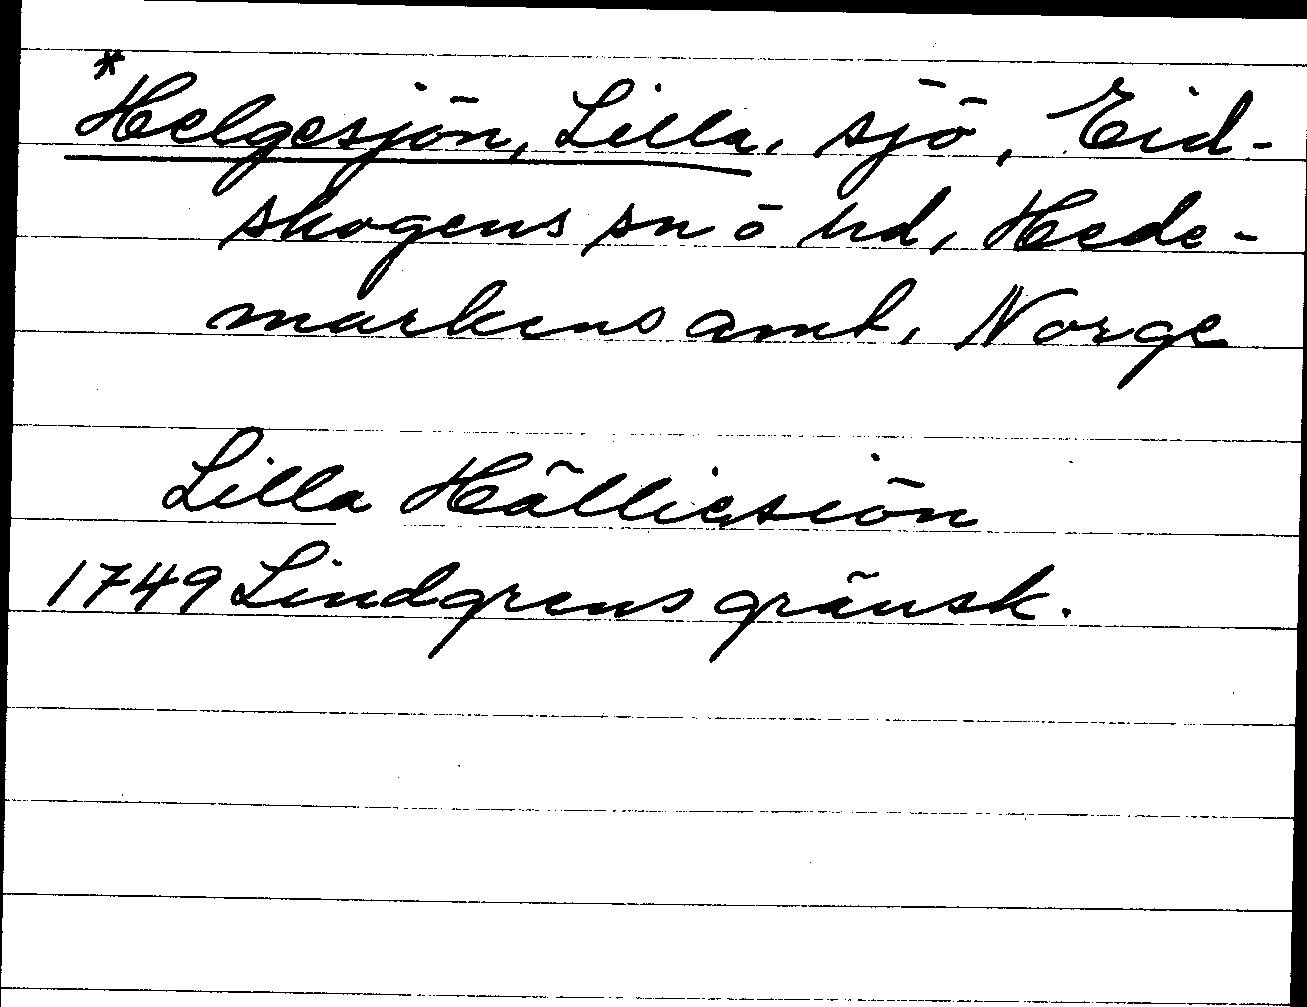 *Helgesjön, Lilla, sjö, Eid-
skogens sn o hd, Hede-
markens amt, Norge
Lilla Hälliesiön
1749 Lindgrens gränsk.